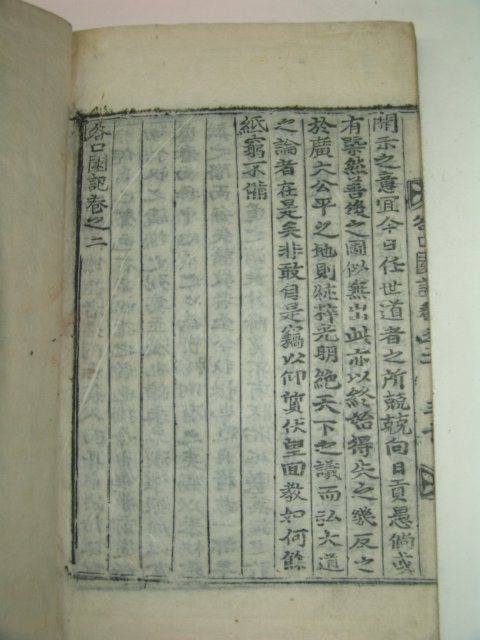 開示之意宜今日任世道者之所兢兢向日貢愚倘或
有槩然善後之圖似無出此亦以終始得失之幾反之
於廣大公平之地則純粹光明絶天下之議而弘大道
之論者在是矣非敢自是竊以仰質伏望回敎如何餘
紙窮不備
谷口園記卷之二